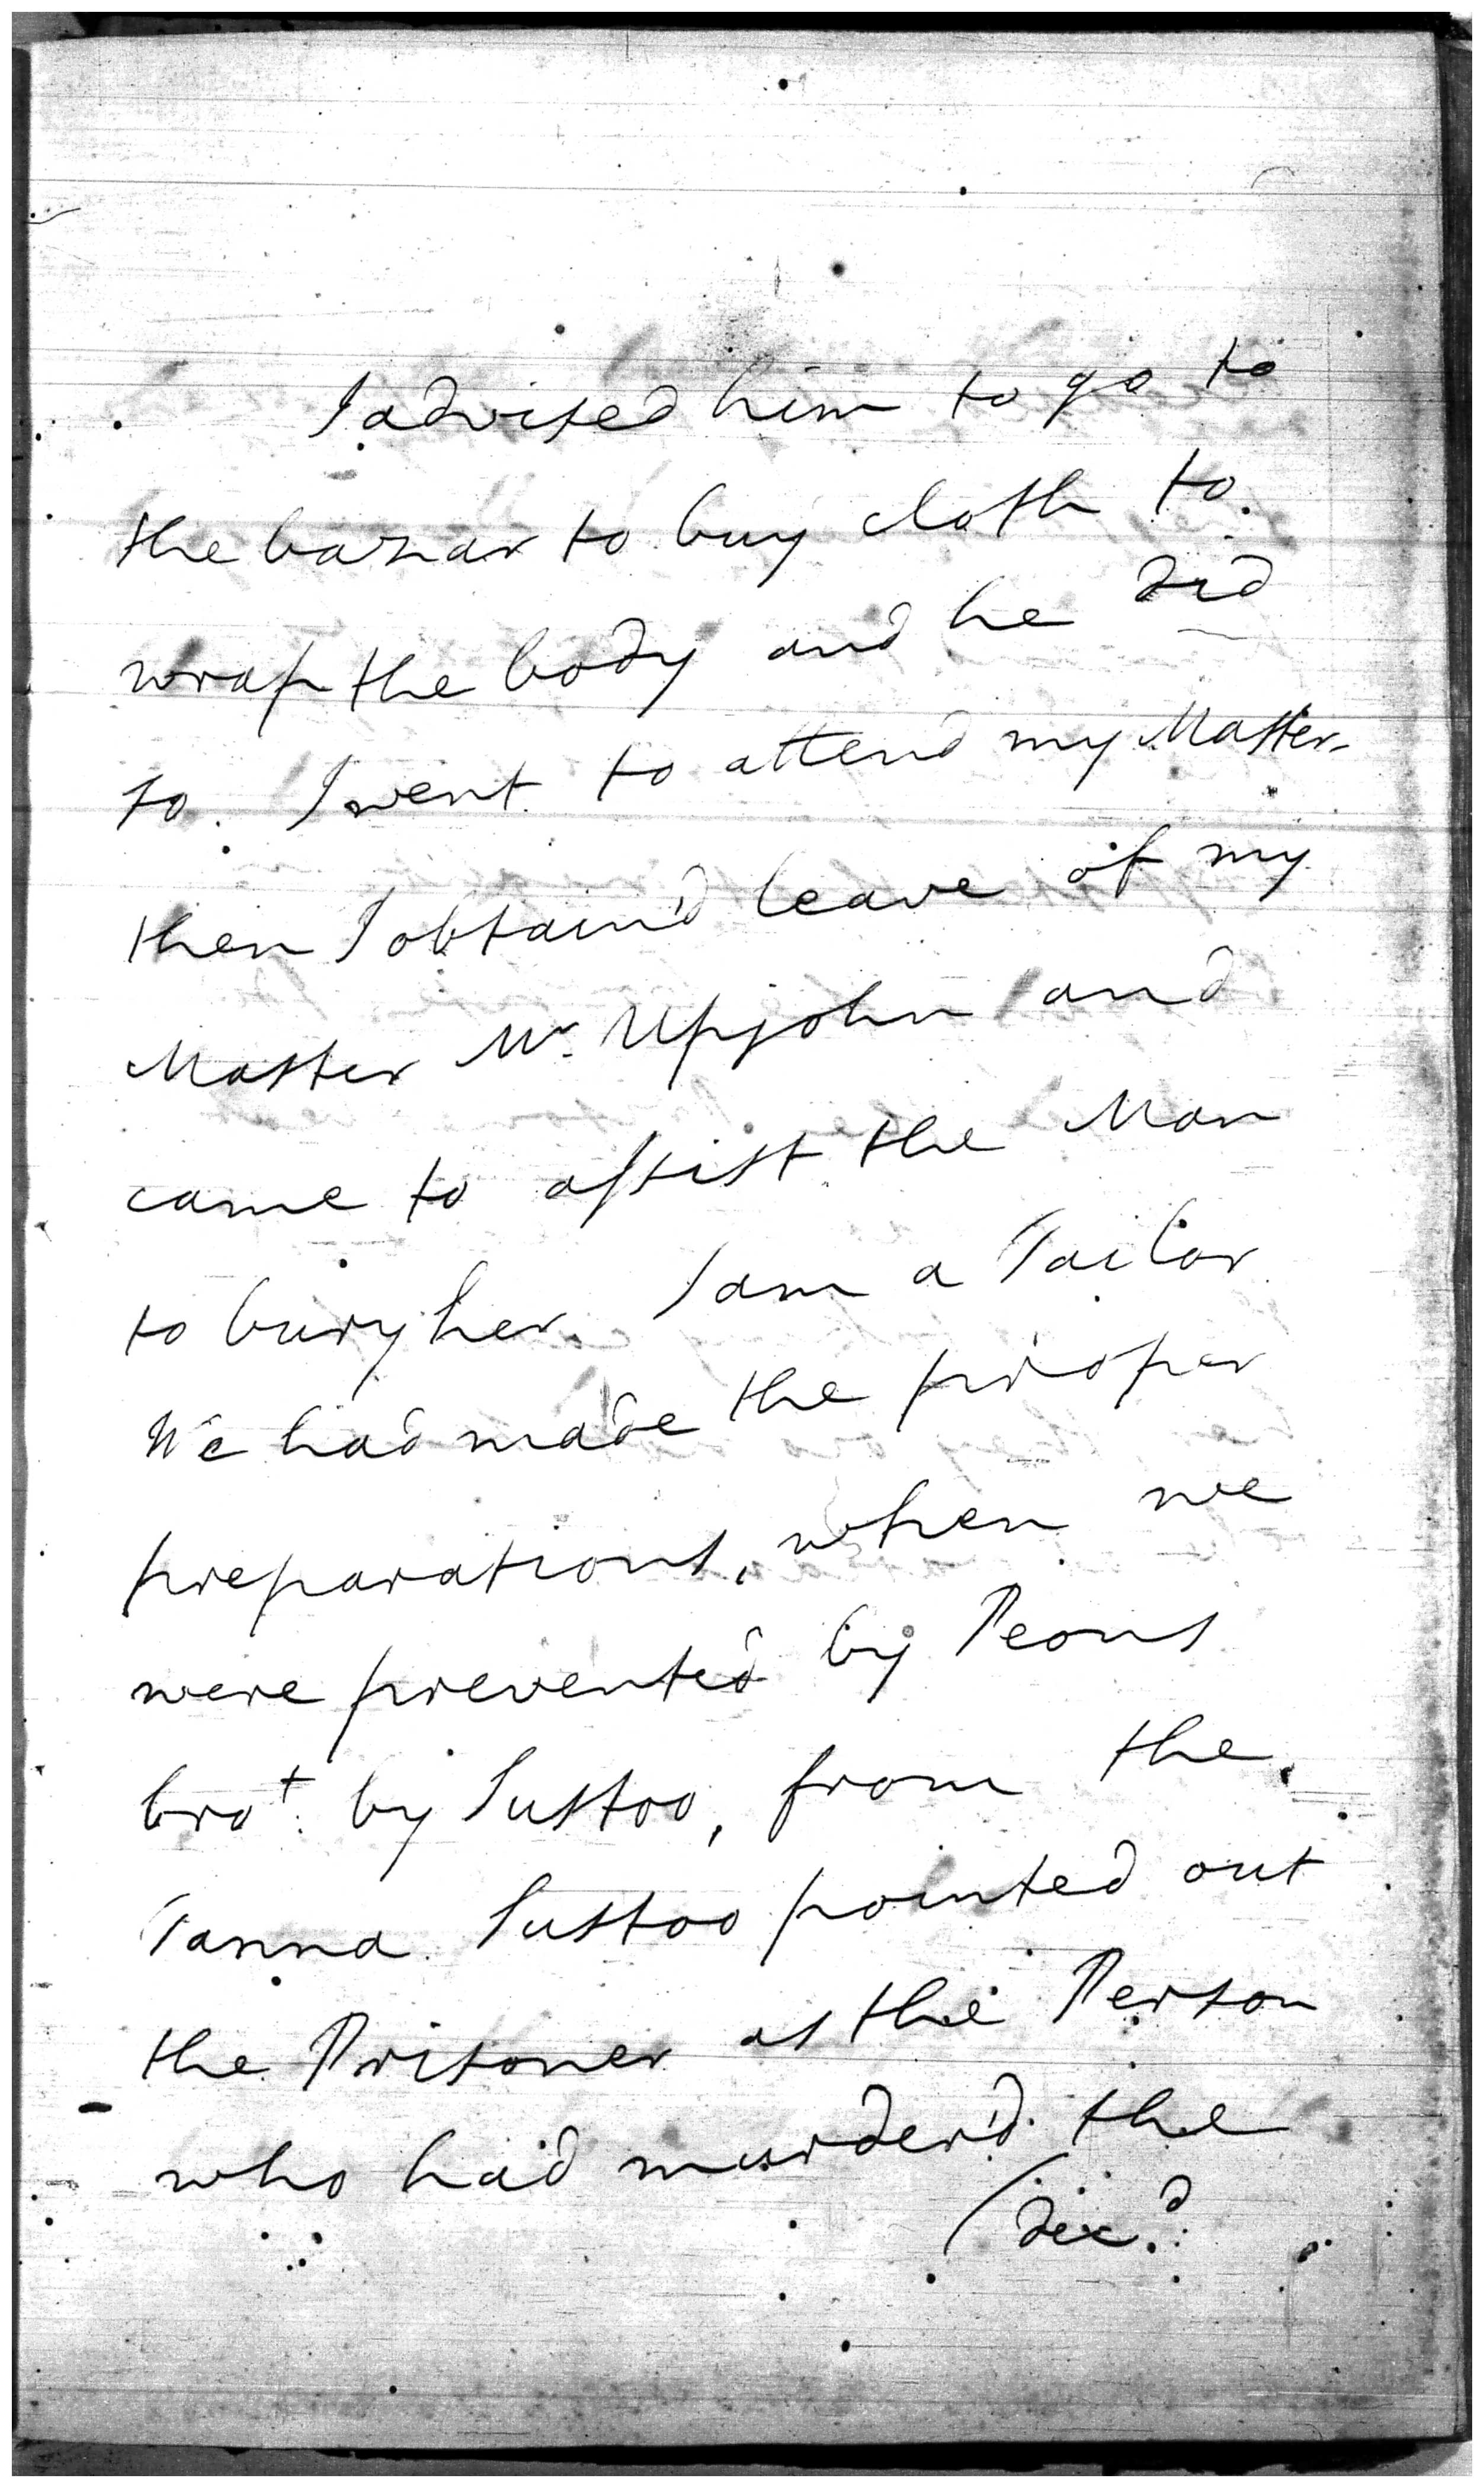 I advised him to go to
the bazar to buy cloth to
wrap the body and he did
so. I went to attend my Master
then I obtain'd leave of my
Master Mr. Upjohn and
came to assist the Man
to bury her. I am a Tailor
We had made the proper
preparations, when we
were prevented by Peons
brot. by Sustoo, from the
Tanna. Sustoo pointed out
the Prisoner as the Person
who had murder'd the
(decd.